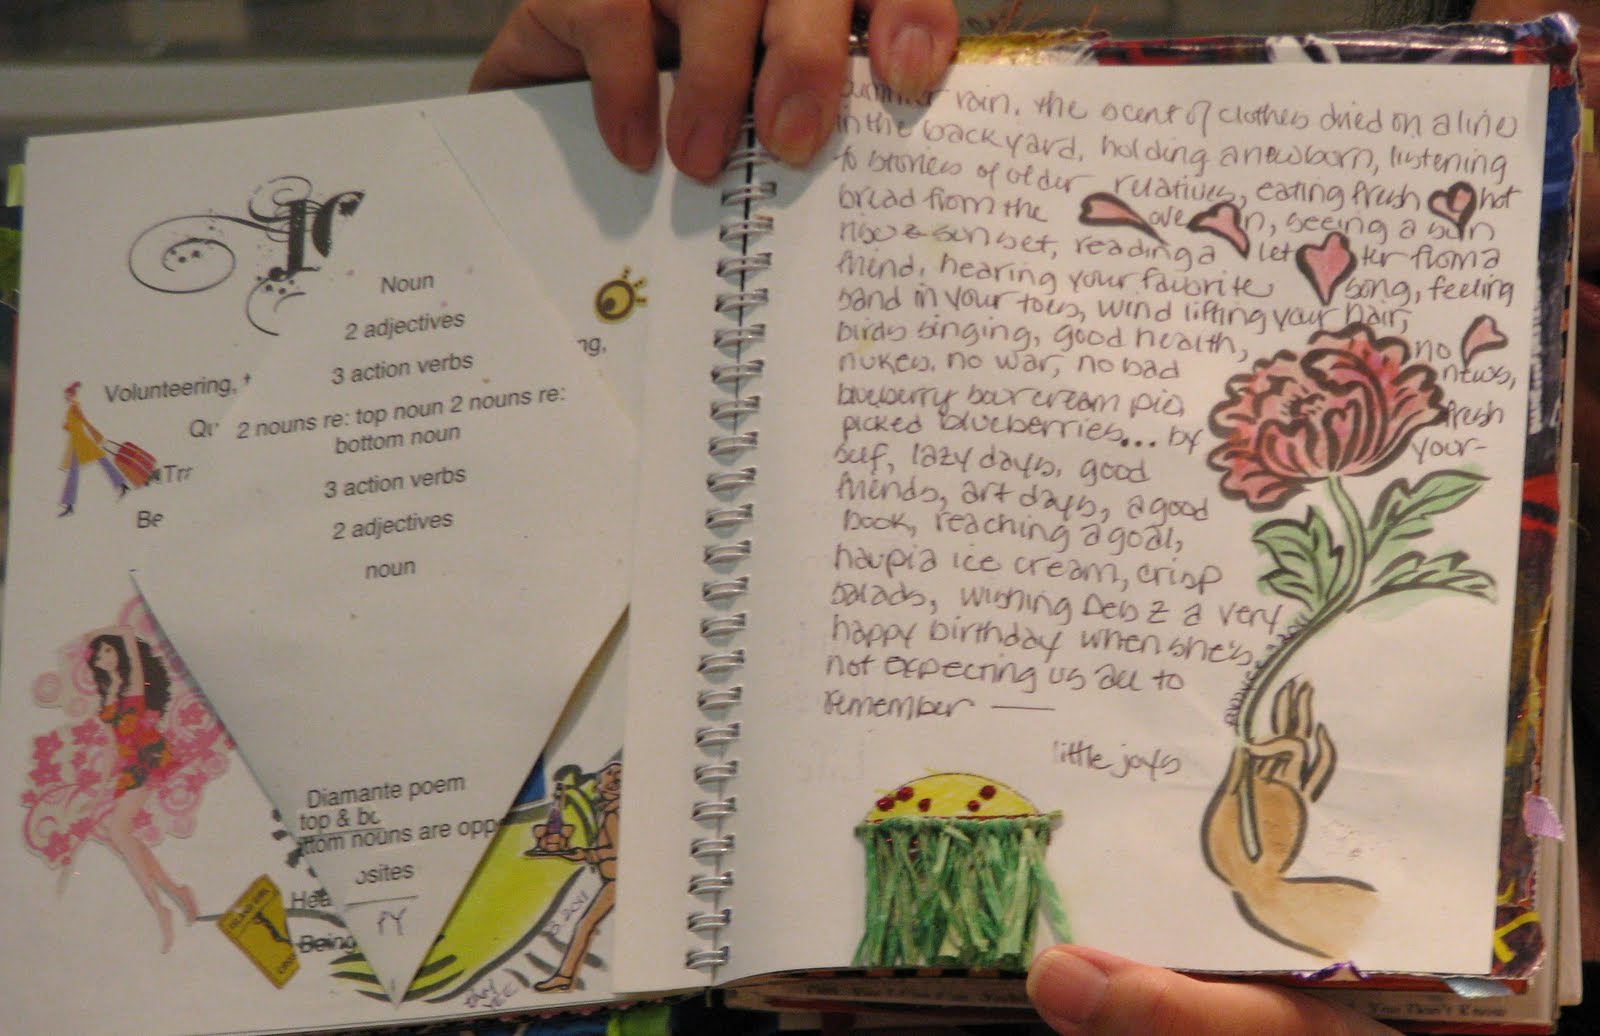 N
Noun
2 adjectives
3 action verbs
2 nouns re: top noun 2 nouns re:
bottom noun
3 action verbs
2 adjectives
noun
Diamante poem
top & bo
ttom nouns are oppo
osites
PY
Volunteering,
ng,
Be
Hea
Being
2011
rain, the scent of clothes dried on a line
in the backyard, holding a newborn, listening
to stories of older relatives, eating fresh hot
bread from the oven, seeing a sun
rise & sunset, reading a letter from a
friend, hearing your favorite song, feeling
sand in your toes, wind lifting your hair,
birds singing, good health, no
nukes, no war, no bad news,
blueberry sour cream pie, fresh
picked blueberries... by your-
self, lazy days, good
friends, art days, a good
book, reaching a goal,
haupia ice cream, crisp
salads, wishing Deb Z a very
happy birthday when she's
not expecting us all to
remember —
little joys